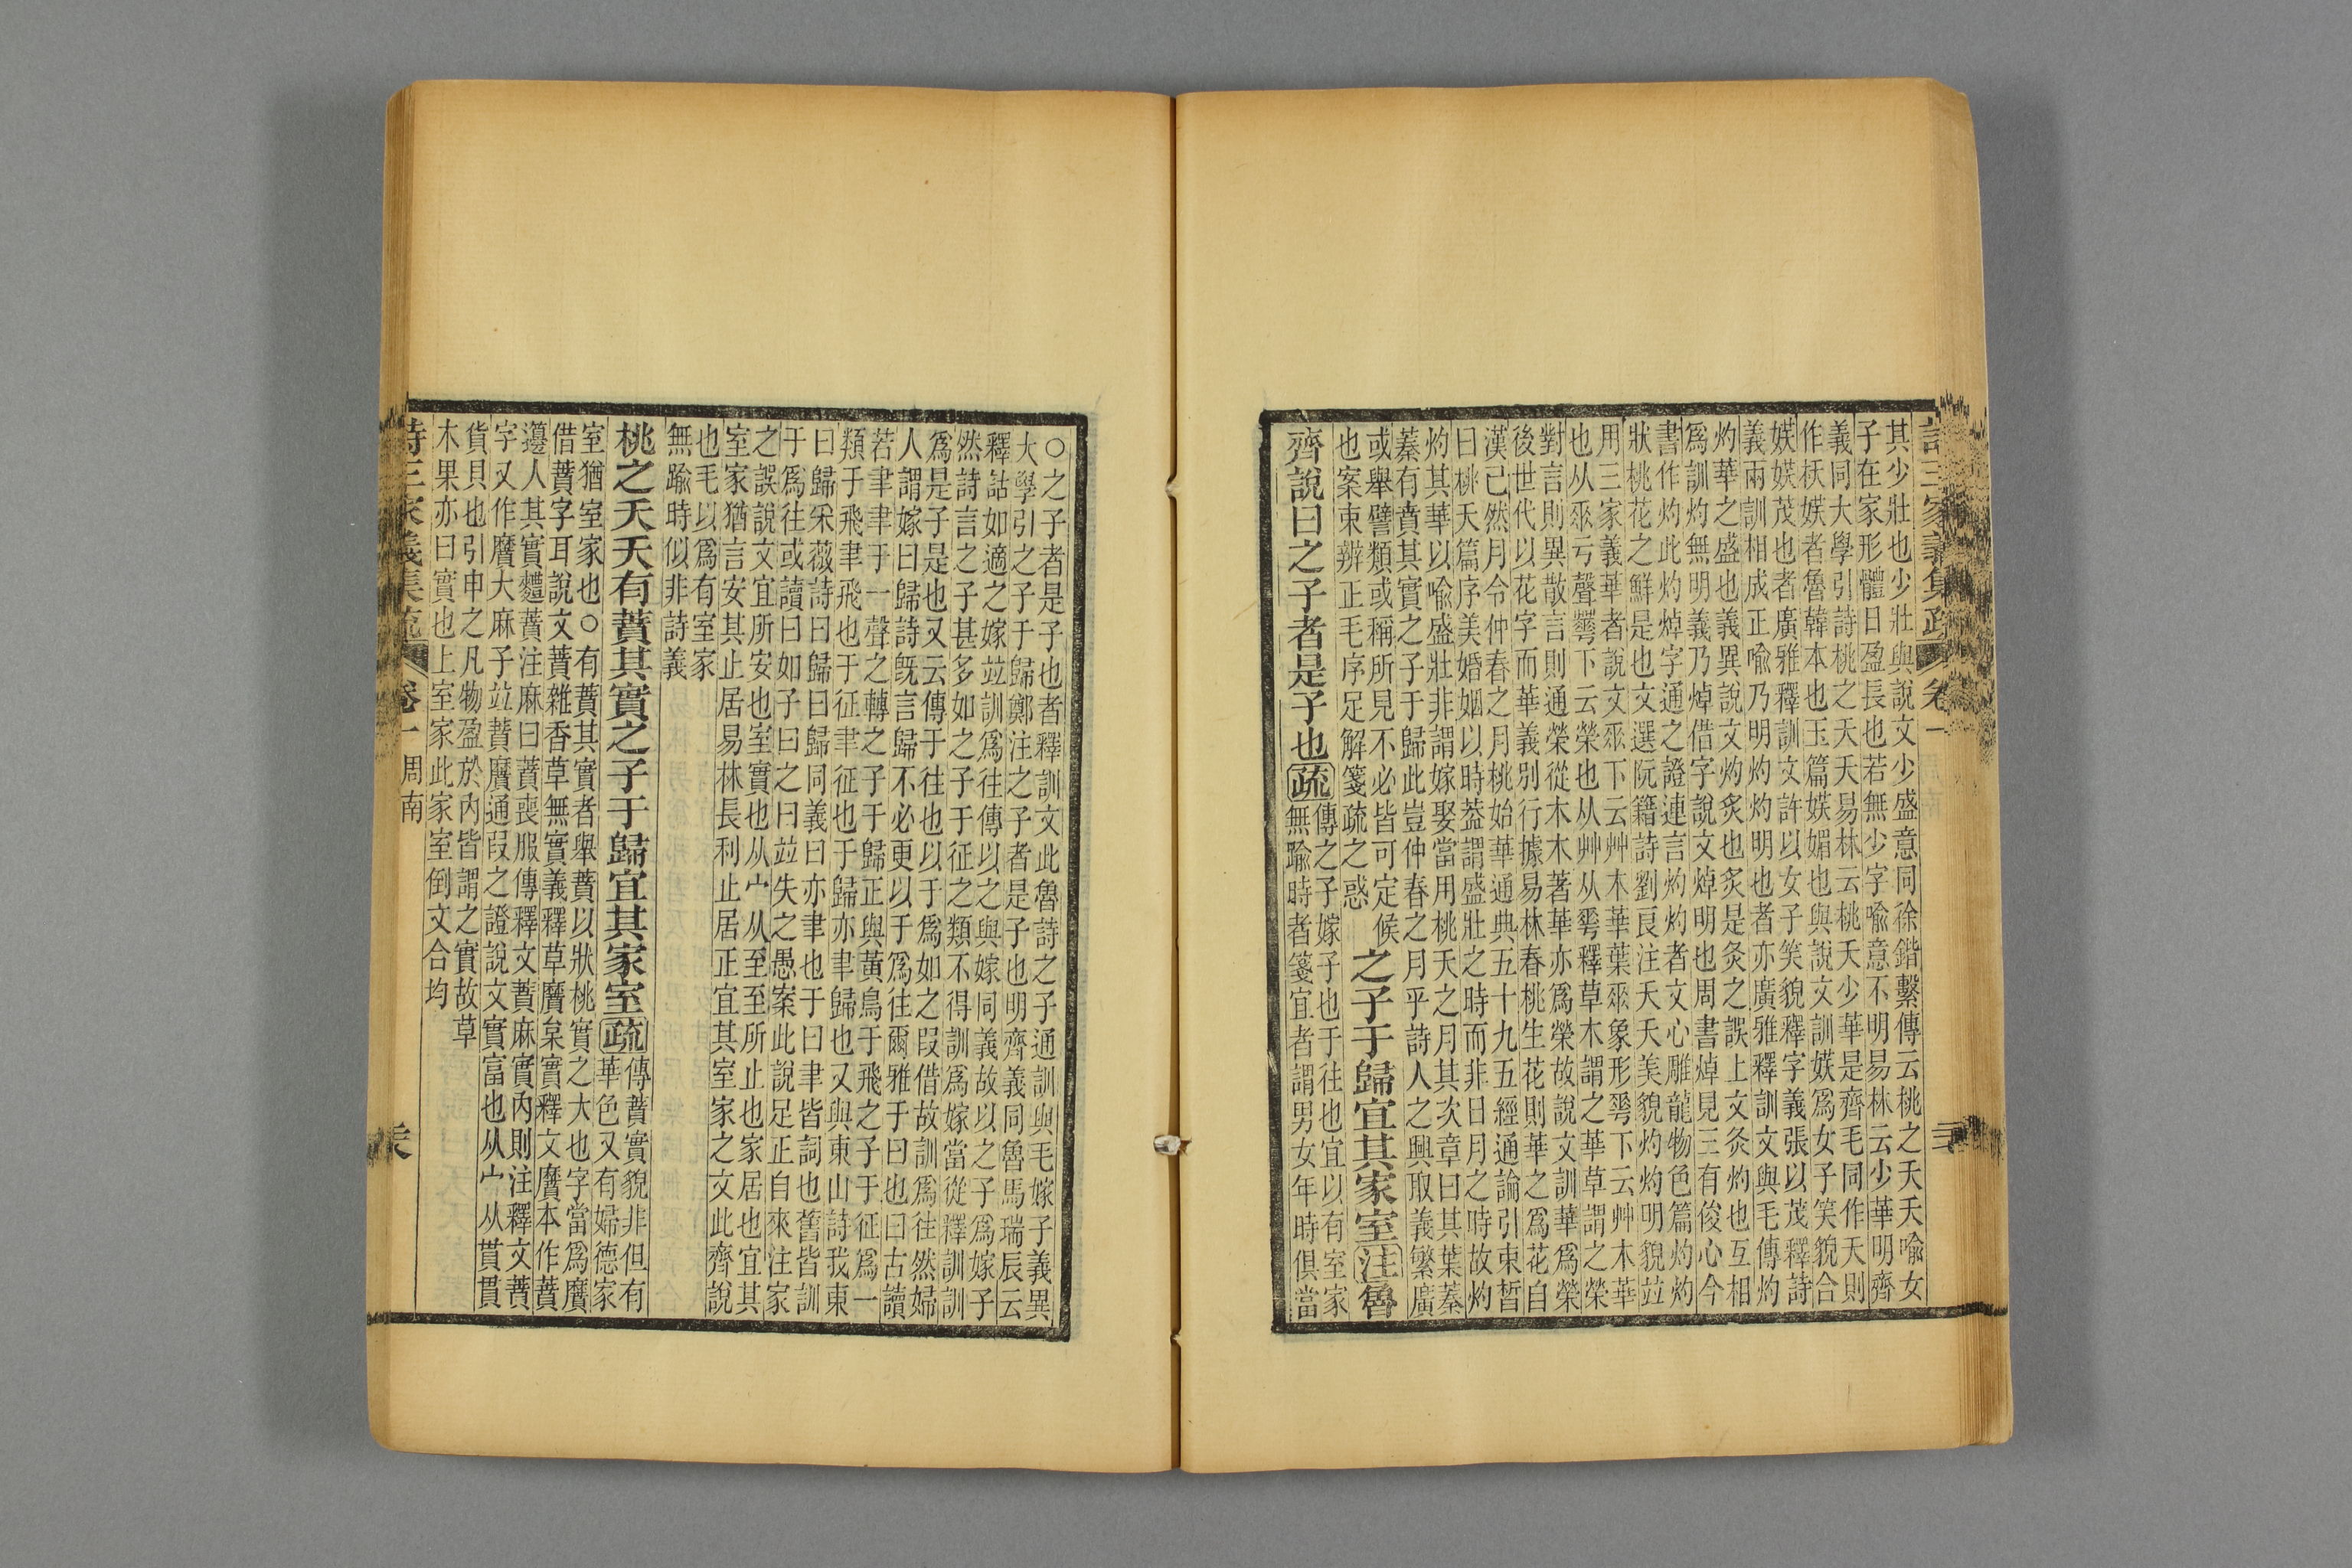 其少壯也少壯與說文少盛意同徐鍇繫傳云桃之夭夭喻女
子在家形體日盈長也若無少字喻意不明易林云少華明齊
義同大學引詩桃之夭夭易林云桃夭少華是齊毛同作夭則
作枖䄃者魯韓本也玉篇媄媚也與說文訓媄爲女子笑貌合
媄媄茂也者廣雅釋訓文許以女子笑貌釋字義張以茂釋詩
義兩訓相成正喻乃明灼灼明也者亦廣雅釋訓文與毛傳灼
灼華之盛也義異說文灼炙也炙是灸之誤上文灸灼也互相
爲訓灼無明義乃焯借字說文焯明也周書焯見三有俊心今
書作灼此灼焯字通之證連言灼灼者文心雕龍物色篇灼灼
狀桃花之鮮是也文選阮籍詩劉良注夭夭美貌灼灼明貌竝
用三家義華者說文𠌶下云艸木華葉𠌶象形𠌶下云艸木華
也从𠌶亏聲蕐下云榮也从艸从𠌶釋草木謂之華草謂之榮
對言則異散言則通榮從木木著華亦爲榮故說文訓華爲榮
後世代以花字而華義別行據易林春桃生花則華之爲花自
漢已然月令仲春之月桃始華通典五十九五經通論引束晳
曰桃夭篇序美婚姻以時葢謂盛壯之時而非日月之時故灼
灼其華以喻盛壯非謂嫁娶當用桃夭之月其次章曰其葉蓁
蓁有蕡其實之子于歸此豈仲春之月乎詩人之興取義繁廣
或舉譬類或稱所見不必皆可定候
也案束辨正毛序足解箋疏之惑
之子于歸宜其家室注魯
齊說曰之子者是子也疏
傳之子嫁子也于往也宜以有室家
無踰時者箋宜者謂男女年時俱當
○之子者是子也者釋訓文此魯詩之子通訓與毛嫁子義異
大學引之子于歸鄭注之子者是子也明齊義同魯馬瑞辰云
釋詁如適之嫁竝訓爲往傳以之與嫁同義故以之子爲嫁子
然詩言之子甚多如之子于征之類不得訓爲嫁當從釋訓訓
爲是子是也又云傳于往也以于爲如之叚借故訓爲往然婦
人謂嫁曰歸詩旣言歸不必更以于爲往爾雅于曰也曰古讀
若聿聿于一聲之轉之子于歸正與黃鳥于飛之子于征爲一
類于飛聿飛也于征聿征也于歸亦聿歸也又與東山詩我東
曰歸采薇詩曰歸曰歸同義曰亦聿也于曰聿皆詞也舊皆訓
于爲往或讀曰如子曰之曰竝失之愚案此說足正自來注家
之誤說文宜所安也室實也从宀从至至所止也家居也宜其
室家猶言安其止居易林長利止居正宜其室家之文此齊說
也毛以爲有室家
無踰時似非詩義
桃之夭夭有蕡其實之子于歸宜其家室疏
傳蕡實貌非但有
華色又有婦德家
室猶室家也○有蕡其實者舉蕡以狀桃實之大也字當爲黂
借蕡字耳說文蕡雜香草無實義釋草黂枲實釋文黂本作蕡
籩人其實麷蕡注麻曰蕡喪服傳釋文蕡麻實內則注釋文蕡
字又作黂大麻子竝蕡黂通叚之證說文實富也从宀从貫貫
貨貝也引申之凡物盈於內皆謂之實故草
木果亦曰實也上室家此家室倒文合均
詩三家義集疏 卷一 周南